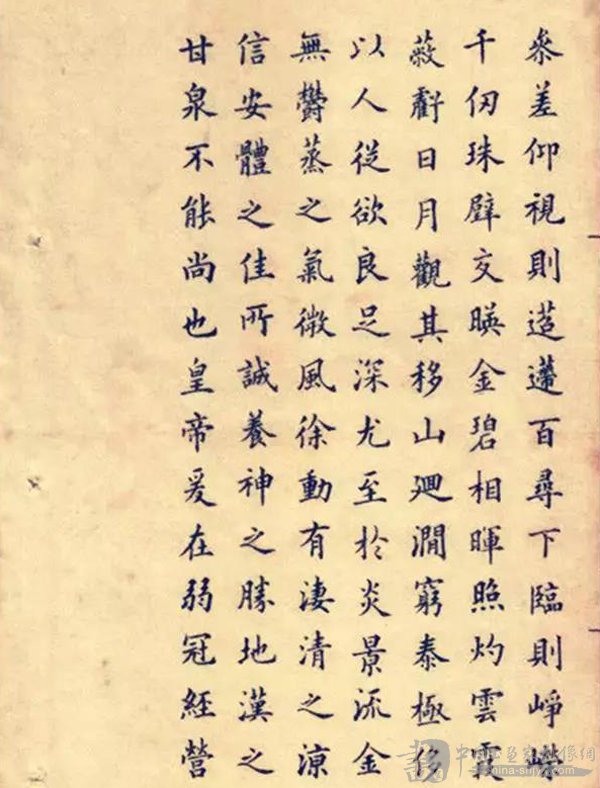 叅差仰視則迢遰百尋下臨則崢嶸
千仞珠璧交暎金碧相暉照灼雲霞
蔽虧日月觀其移山廻澗窮泰極侈
以人從欲良足深尤至於炎景流金
無欝蒸之氣微風徐動有凄清之涼
信安體之佳所誠養神之勝地漢之
甘泉不能尚也皇帝爰在弱冠經營